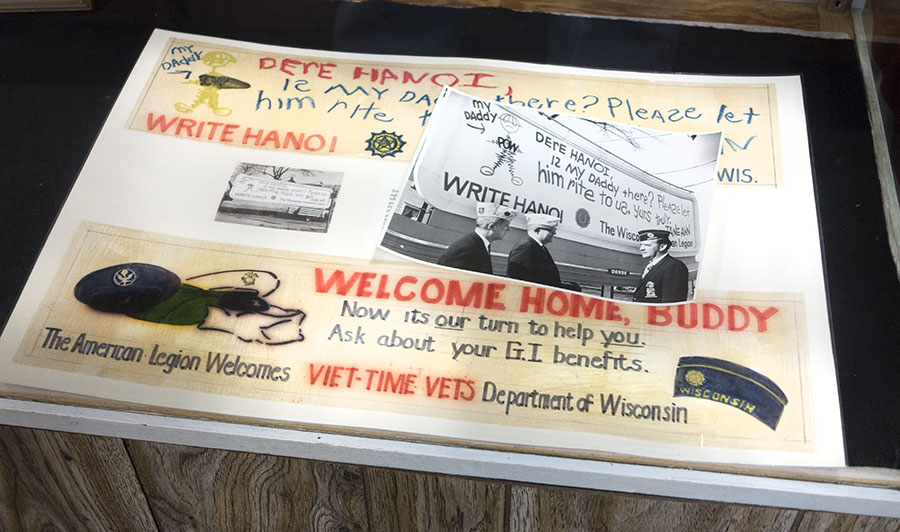 MY
DADDY
DERE HANOI,
IZ MY DAD there? Please let
him rite t
WRITE HANOI
WIS.
MY
DADDY
POW
DERE HANOI,
IZ MY DADDY there? Please let
him rite to us. yurs truly.
JANE ANN
WRITE HANOI
The Wisc an Legion
DERSE
WELCOME HOME, BUDDY
Now its our turn to help you.
Ask about your G.I benefits.
The American Legion Welcomes VIET-TIME VETS Department of Wisconsin
WISCONSIN